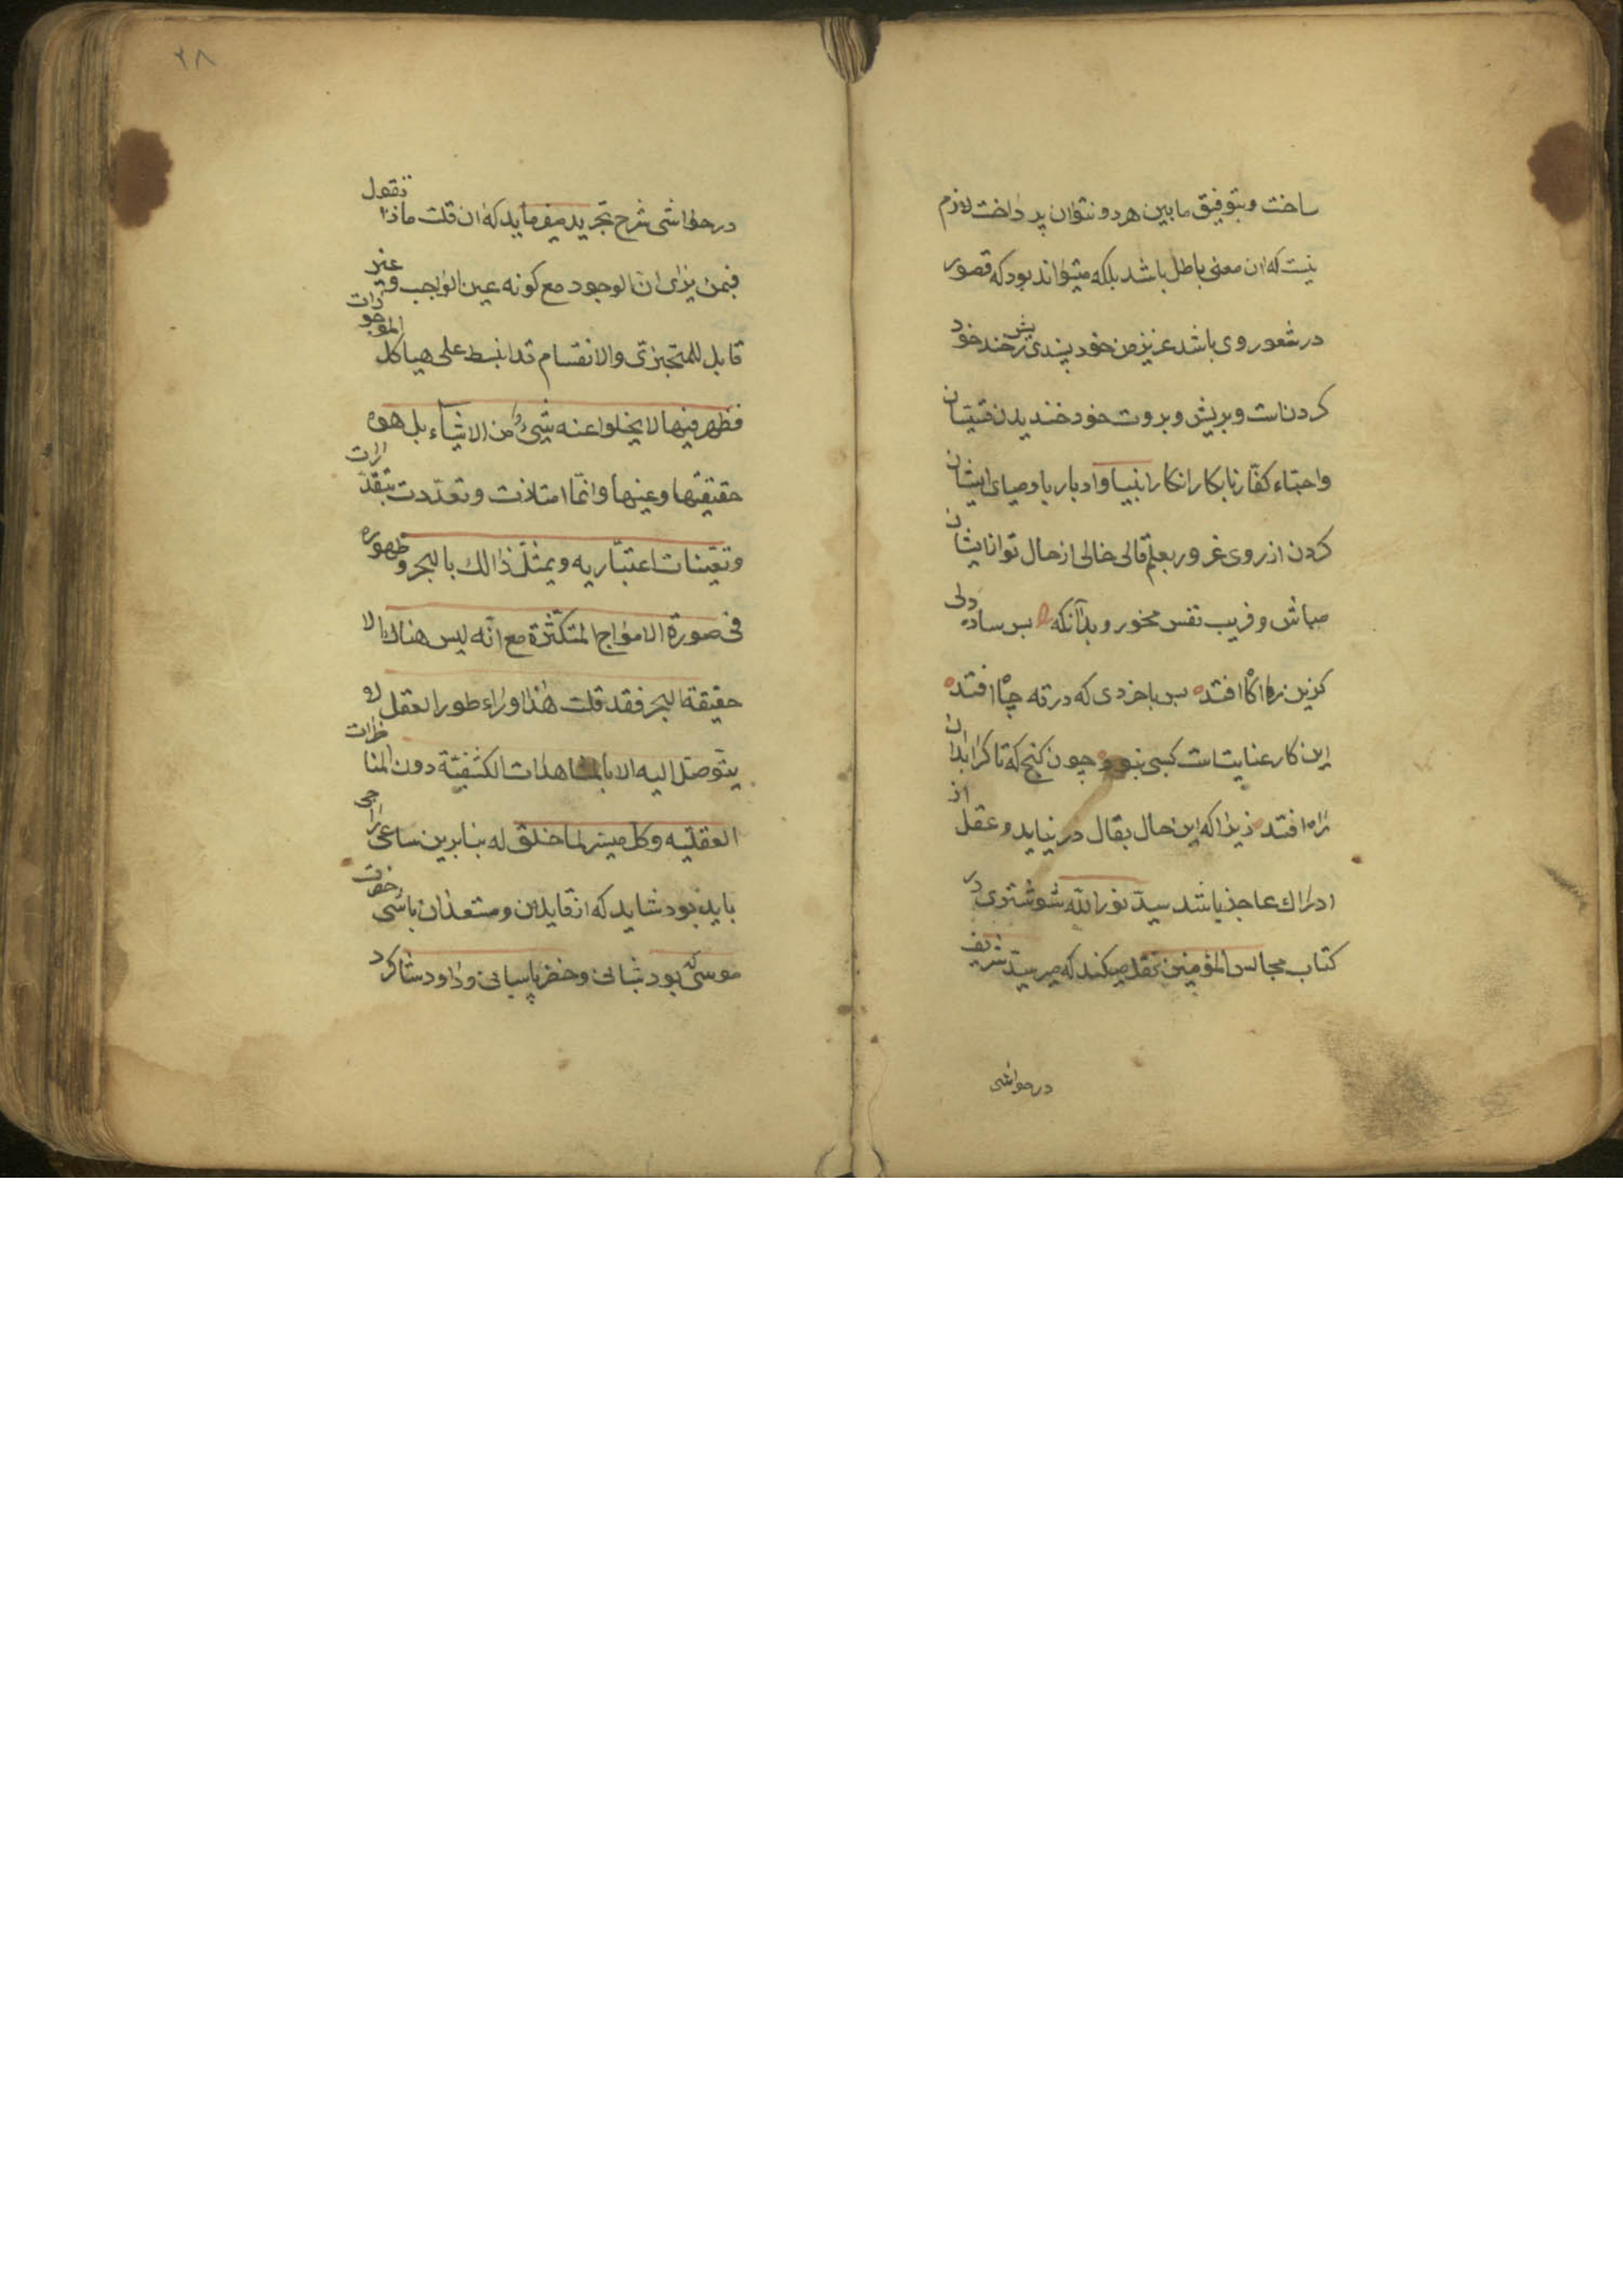 ساخت و بتوفیق مابین هر دو نتوان پرداخت لازم
نیست که ان معنی باطل باشد بلکه میتواند بود که قصور
در شعور وی باشد عزیز من خود پسندی ریش خند خود
کردن است و بریش و بروت خود خندیدن
کفار نابکار انکار انبیا و ادبار باوصیای ایشان
کردن از روی غرور بعلم قالی خالی از حال توانا ایشان
مباش و فریب نفس مخور و بدانکه بس ساده دلی
کزین ره اکاه افتد بس باخردی که در ته چاه افتد
این کار عنایت است کسبی نبود چون کنج که تا کرا بدان
راه افتد زیرا که این حال بقال در نیاید و عقل از
ادراک عاجز باشد سید نورالله شوشتری در
کتاب مجالس المؤمنین نقل میکند که میر سید شریف
در حواشی
۲۸
در حواشی شرح تجرید میفرماید که ان قلت ماذا تقول
فیمن یرای ان الوجود مع کونه عین الواجب و غیر
قابل للتجزی والانقسام قد انبسط علی هیاکل الموجودات
فظهر فیها لا یخلوا عنه شیء من الاشیاء بل هو
حقیقتها و عینها و انما امتازت و تعددت بتقیدات
و تعینات اعتباریه و یمثل ذالک بالبحر و ظهوره
فی صورة الامواج المتکثرة مع انه لیس هناک الا
حقیقة البحر فقد قلت هذا وراء طور العقل لا
یتوصل الیه الا بالمشاهدات الکشفیة دون المناظرات
العقلیه و کل میسر لما خلق له بنابرین ساعی
باید بود شاید که از قابلین و مستعدان باشی حضرت
موسی که بود شبانی و خضر پاسبانی و داود شاکرد